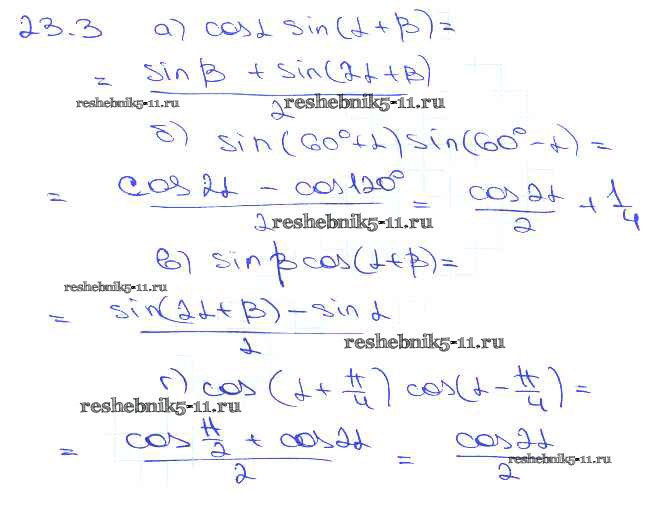 23.3 а) cosα sin(α+β)=
= (sinβ + sin(2α+β))/2
reshebnik5-11.ru reshebnik5-11.ru
б) sin(60°+α)sin(60°-α)=
= (cos2α - cos120°)/2 = cos2α/2 + 1/4
reshebnik5-11.ru
в) sinβcos(α+β)=
reshebnik5-11.ru
= (sin(2α+β)-sinα)/2
reshebnik5-11.ru
г) cos(α+π/4) cos(α-π/4)=
reshebnik5-11.ru
= (cos π/2 + cos2α)/2 = cos2α/2
reshebnik5-11.ru